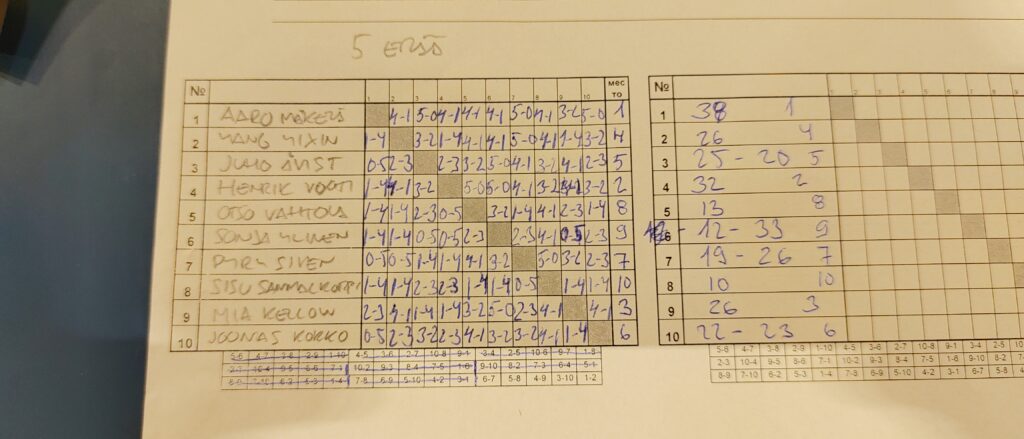 5 ERÄÄ
№ 1 2 3 4 5 6 7 8 9 10 мес то
1 AARO MÄKELÄ 4-1 5-0 4-1 4-1 4-1 5-0 4-1 3-2 5-0 1
2 YANG YIXIN 1-4 3-2 1-4 4-1 4-1 5-0 4-1 1-4 3-2 4
3 JUHO ÅVIST 0-5 2-3 2-3 3-2 5-0 4-1 3-2 4-1 2-3 5
4 HENRIK VOOTI 1-4 4-1 3-2 5-0 5-0 4-1 3-2 4-1 3-2 2
5 OTSO VAHTOLA 1-4 1-4 2-3 0-5 3-2 1-4 4-1 2-3 1-4 8
6 SONJA YLINEN 1-4 1-4 0-5 0-5 2-3 2-3 4-1 0-5 2-3 9
7 SIVEN 0-5 0-5 1-4 1-4 4-1 3-2 5-0 3-2 2-3 7
8 SISU 1-4 1-4 2-3 2-3 1-4 1-4 0-5 1-4 1-4 10
9 MIA KELLOW 2-3 4-1 1-4 1-4 3-2 5-0 2-3 4-1 4-1 3
10 JOONAS KORKO 0-5 2-3 3-2 2-3 4-1 3-2 3-2 4-1 1-4 6
5-6 4-7 3-8 2-9 1-10 4-5 3-6 2-7 10-8 9-1 3-4 2-5 10-6 9-7 1-8
2-3 10-4 9-5 8-6 7-1 10-2 9-3 8-4 7-5 1-6 9-10 8-2 7-3 6-4 5-1
8-9 7-10 6-2 5-3 1-4 7-8 6-9 5-10 4-2 3-1 6-7 5-8 4-9 3-10 1-2
№
1 38 1
2 26 4
3 25 - 20 5
4 32 2
5 13 8
6 12 - 33 9
7 19 - 26 7
8 10 10
9 26 3
10 22 - 23 6
5-6 4-7 3-8 2-9 1-10 4-5 3-6 2-7 10-8 9-1 3-4 2-5 10-6
2-3 10-4 9-5 8-6 7-1 10-2 9-3 8-4 7-5 1-6 9-10 8-2 7-3
8-9 7-10 6-2 5-3 1-4 7-8 6-9 5-10 4-2 3-1 6-7 5-8 4-9